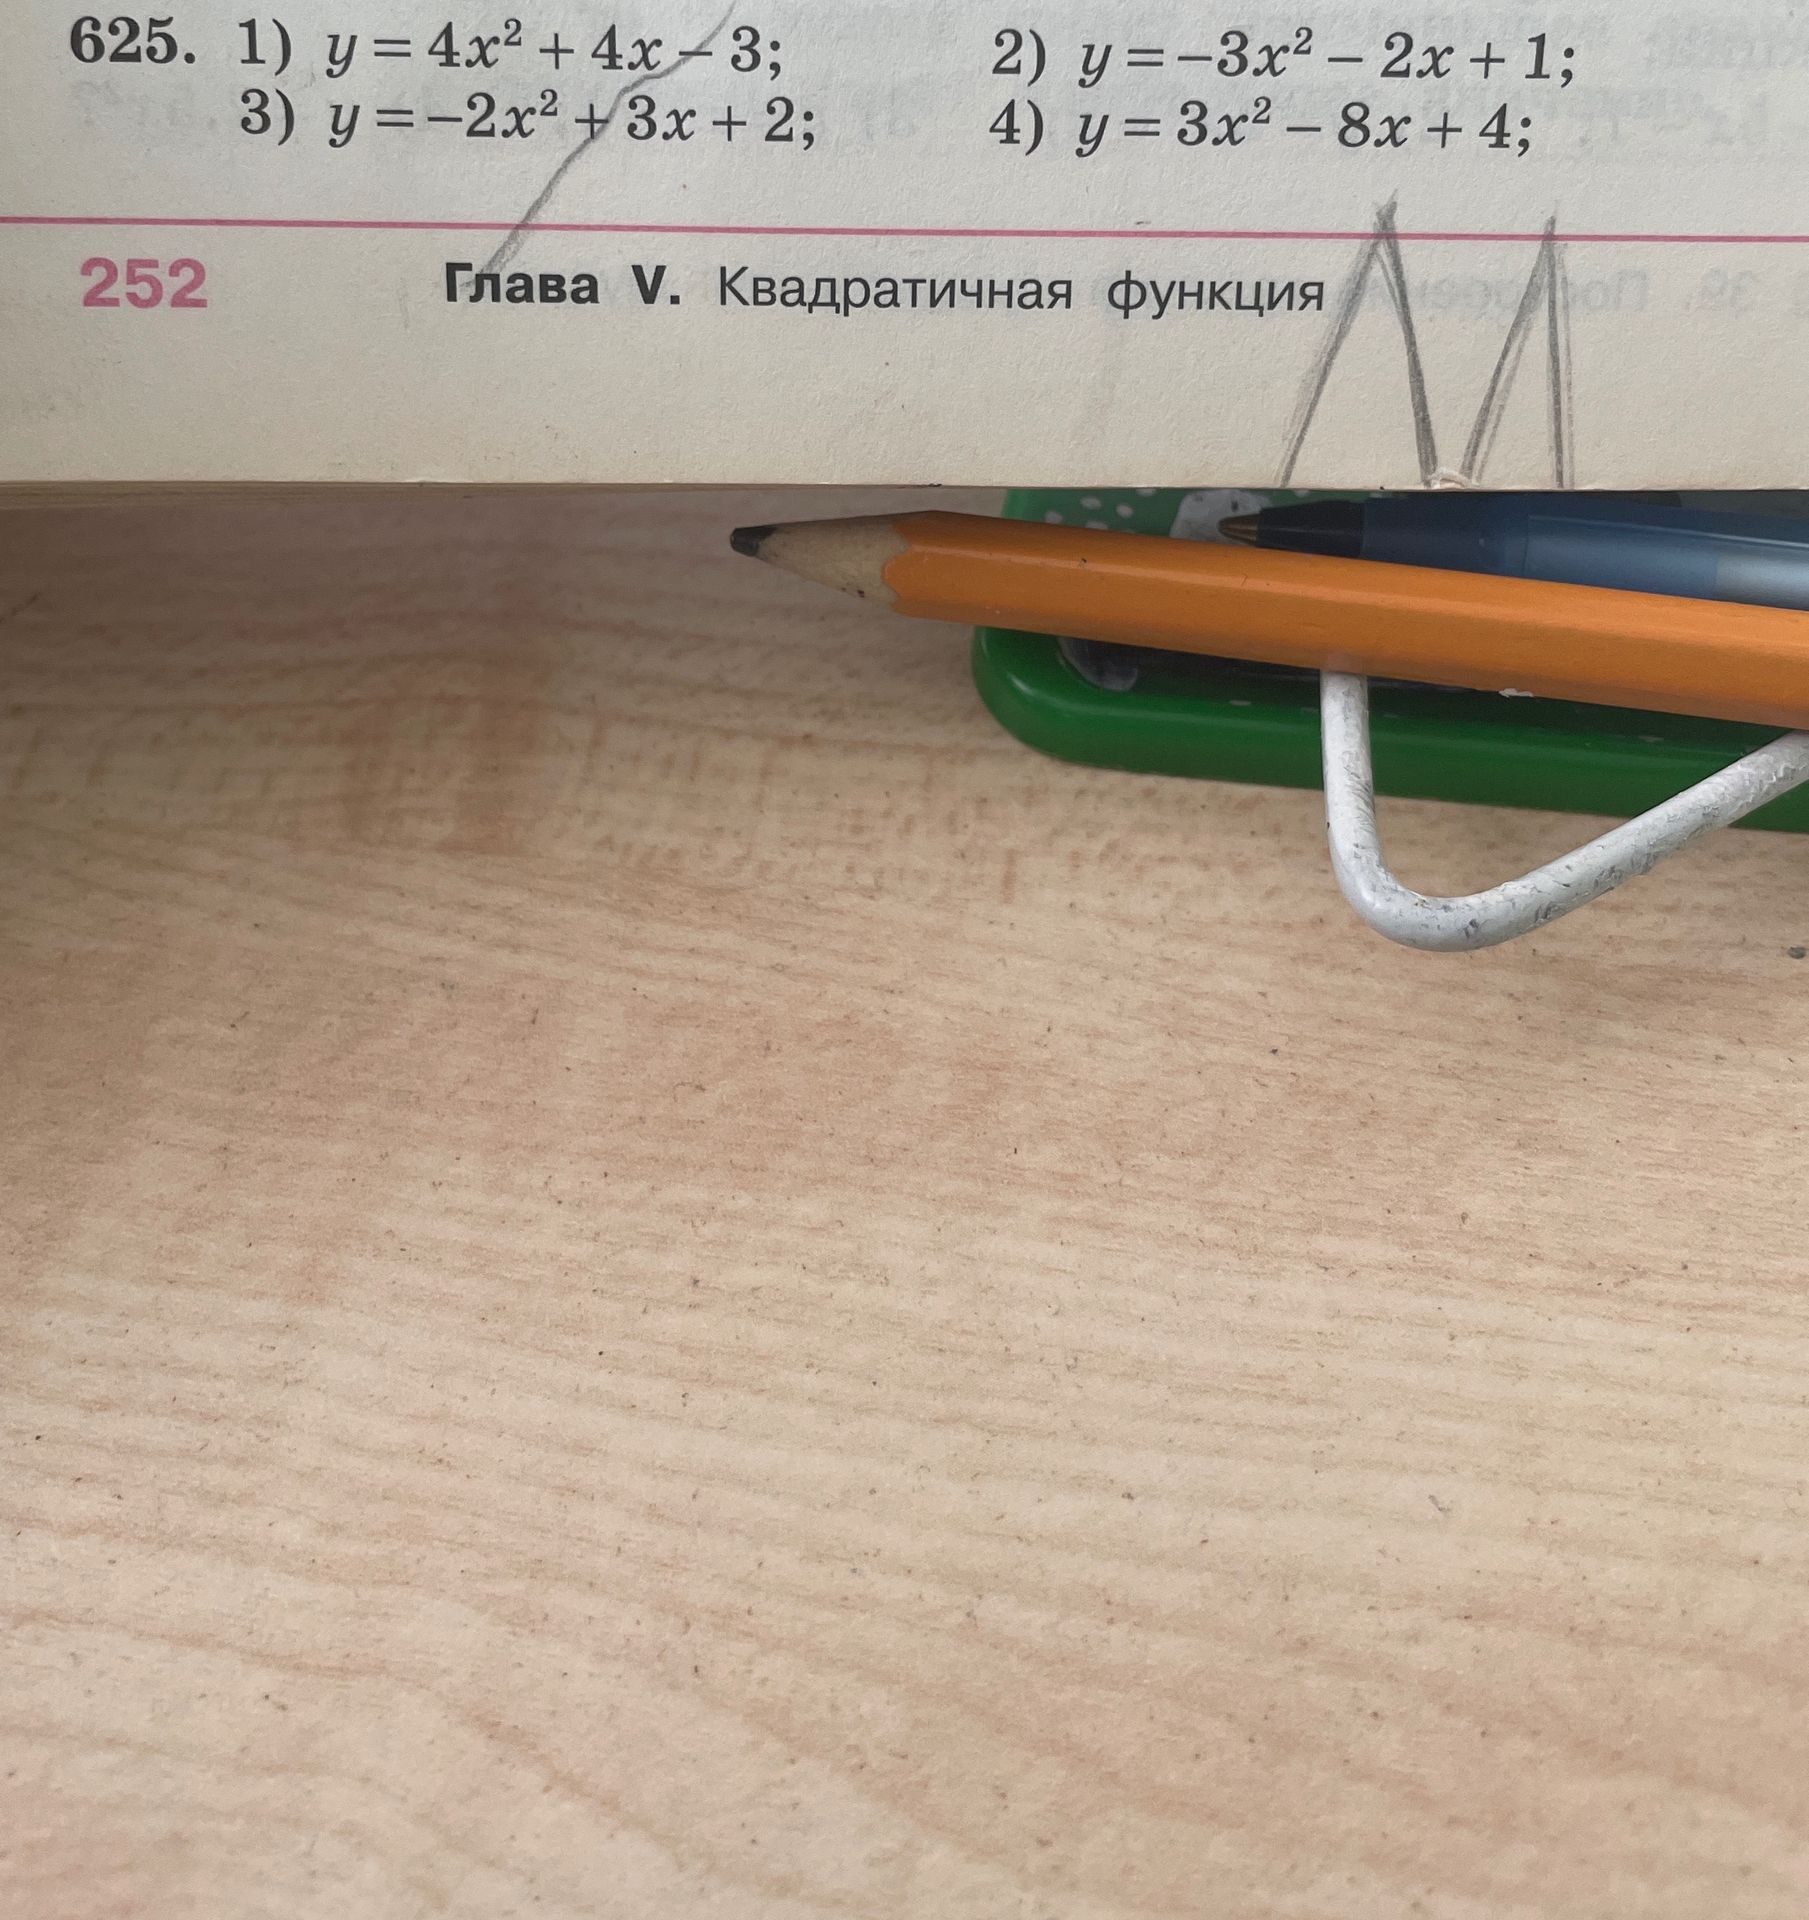 625. 1) y = 4x² + 4x – 3; 2) y = –3x² – 2x + 1;
3) y = –2x² + 3x + 2; 4) y = 3x² – 8x + 4;
252 Глава V. Квадратичная функция